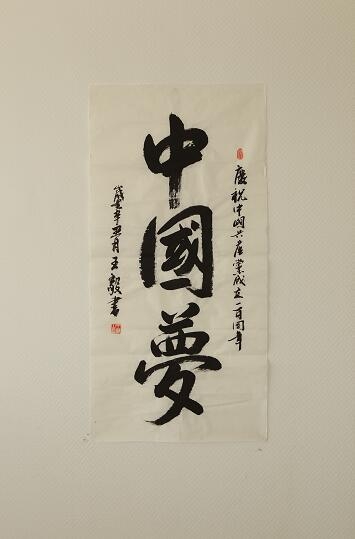 慶祝中國共産黨成立一百周年
中國夢
歲在辛丑月王毅書